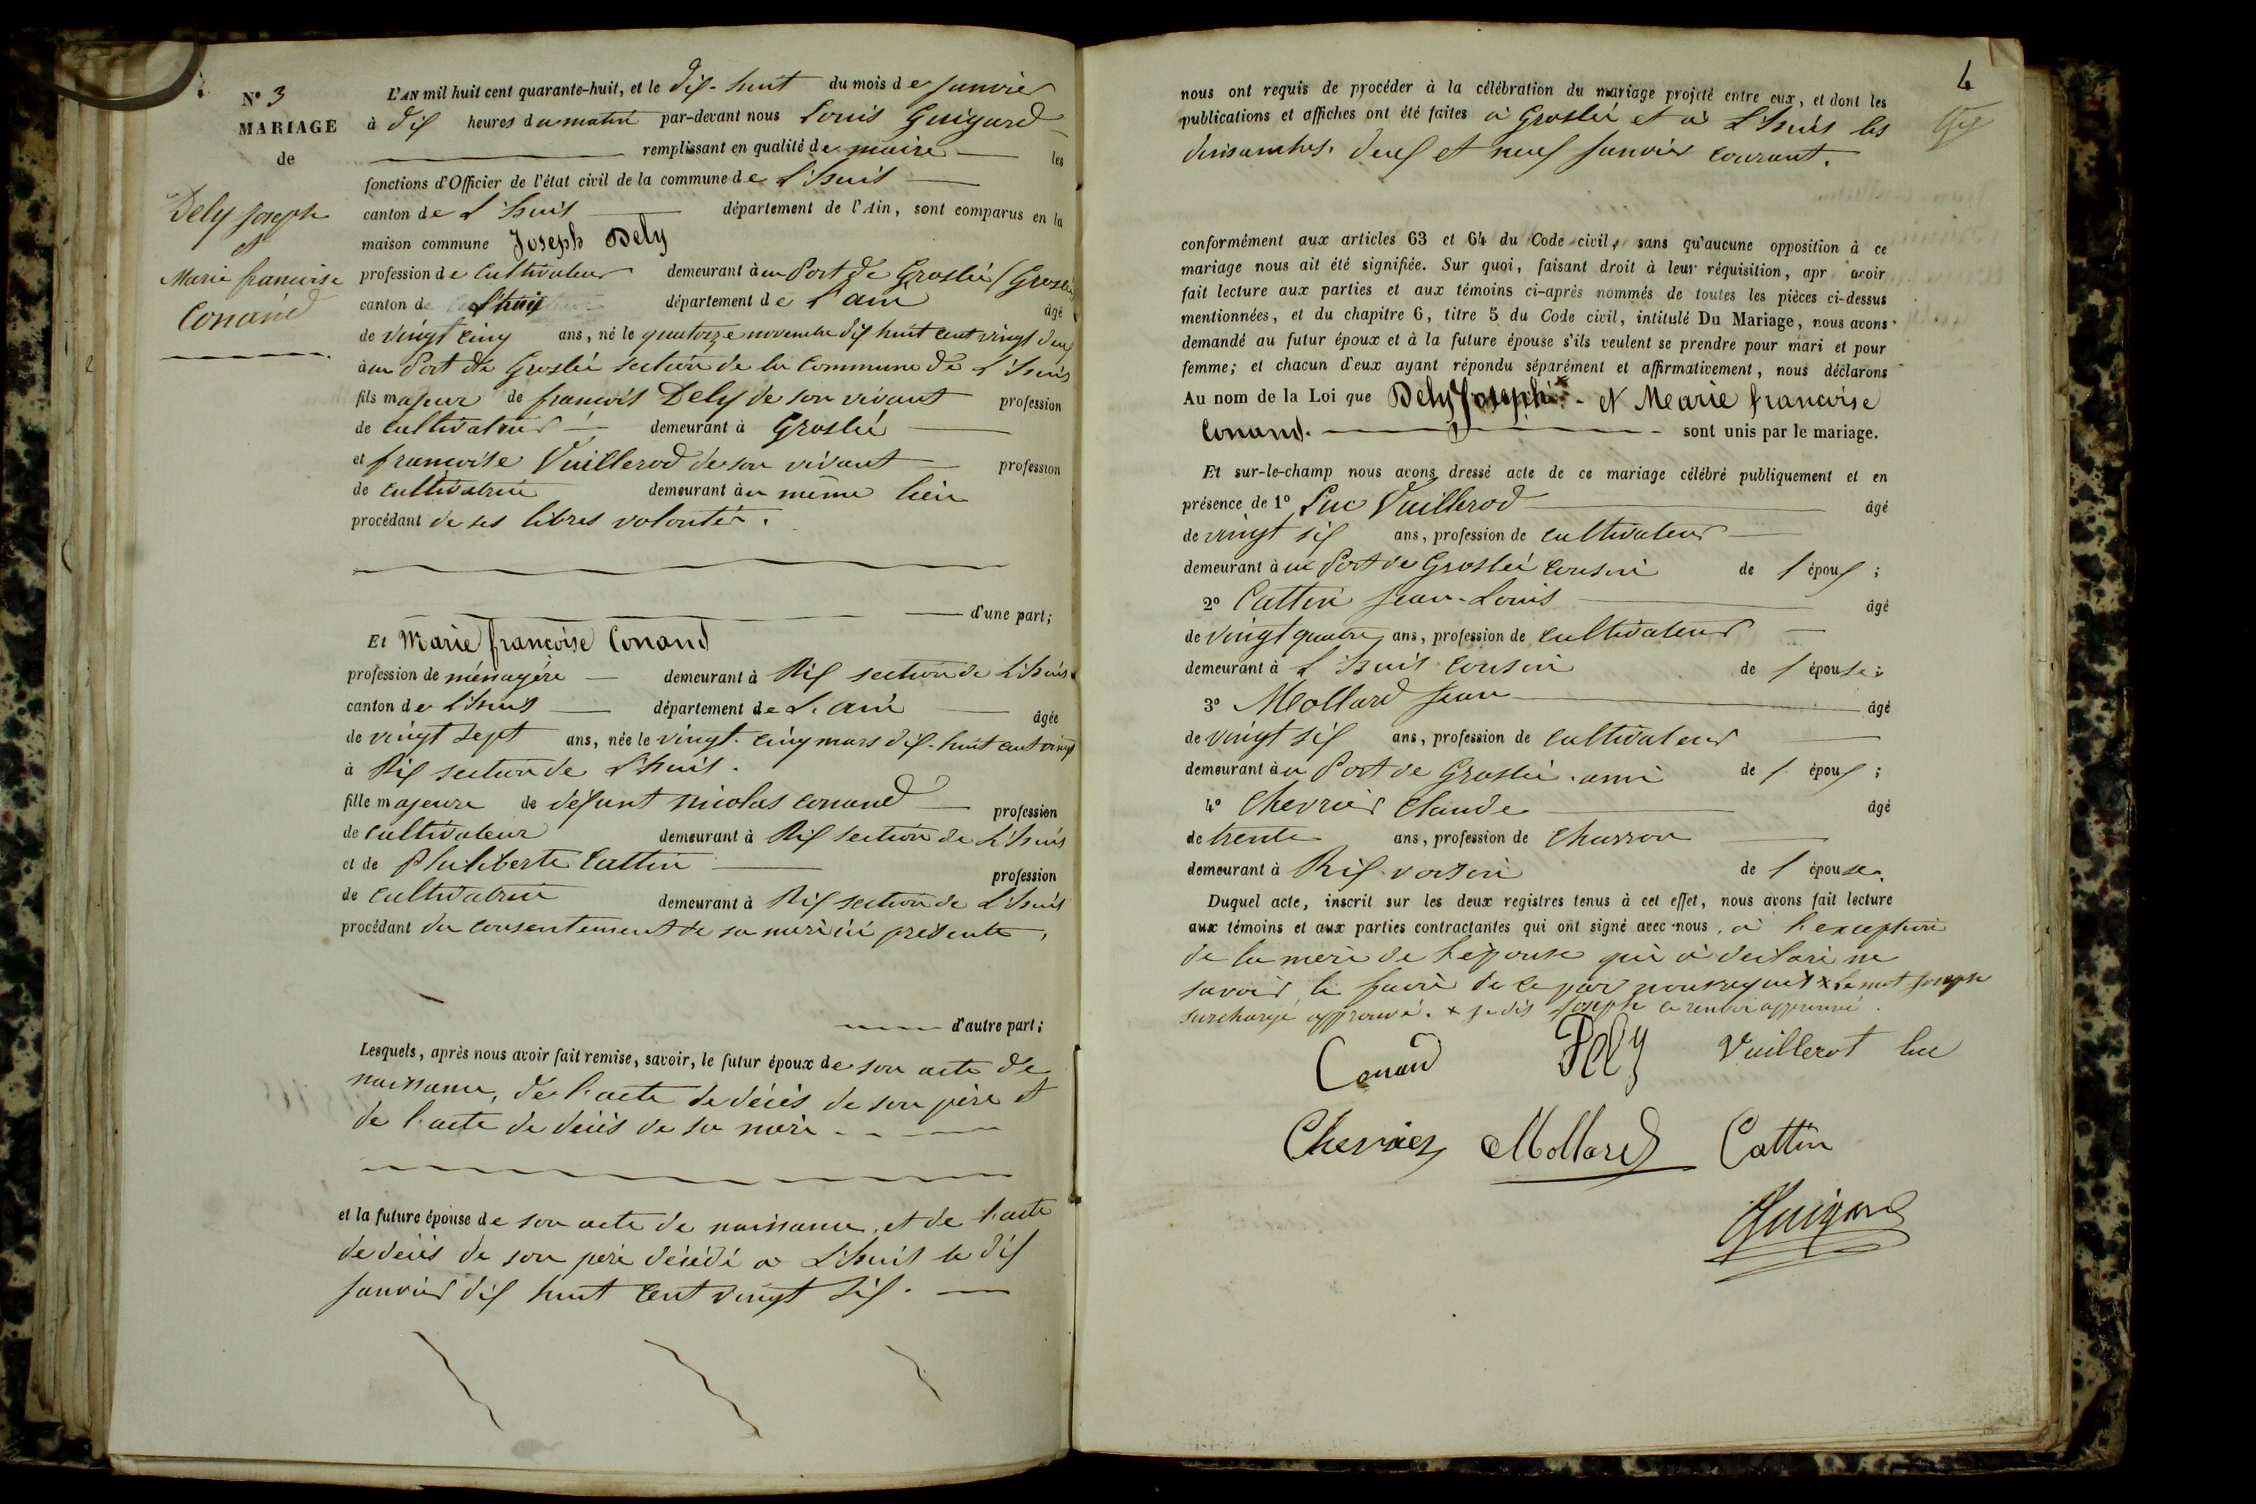 N° 3
MARIAGE
de
Dely Joseph
et
Marie françoise
Conand
L'AN mil huit cent quarante-huit, et le dix-huit du mois de janvier
à dix heures du matin par-devant nous Louis Guigard
remplissant en qualité de maire les
fonctions d'Officier de l'état civil de la commune de L'huis
canton de L'huis département de l'Ain, sont comparus en la
maison commune Joseph Dely
profession de cultivateur demeurant à au Port de Groslée (Groslée
canton de L'huis département de L'ain âgé
de vingt cinq ans, né le quatorze novembre dix huit cent vingt deux
à au Port de Groslée section de la commune de L'huis
fils majeur de françois Dely de son vivant profession
de cultivateur demeurant à Groslée
et françoise Vuillerod de son vivant profession
de cultivatrice demeurant au même lieu
procédant de ses libres volontés.
d'une part;
Et Marie françoise Conand
profession de ménagère demeurant à Rix section de L'huis
canton de L'huis département de L'ain âgée
de vingt sept ans, née le vingt-cinq mars dix-huit cent vingt
à Rix section de L'huis.
fille majeure de défunt Nicolas Conand profession
de cultivateur demeurant à Rix section de L'huis
et de Philiberte Cattin profession
de cultivatrice demeurant à Rix section de L'huis
procédant du consentement de sa mère ici présente,
d'autre part;
Lesquels, après nous avoir fait remise, savoir, le futur époux de son acte de
naissance, de l'acte de décès de son père et
de l'acte de décès de sa mère
et la future épouse de son acte de naissance, et de l'acte
de décès de son père décédé à L'huis le dix
janvier dix huit cent vingt six.
4
nous ont requis de procéder à la célébration du mariage projeté entre eux, et dont les
publications et affiches ont été faites à Groslée et à L'huis les
dimanches, deux et neuf janvier courant.
conformément aux articles 63 et 64 du Code civil, sans qu'aucune opposition à ce
mariage nous ait été signifiée. Sur quoi, faisant droit à leur réquisition, apr avoir
fait lecture aux parties et aux témoins ci-après nommés de toutes les pièces ci-dessus
mentionnées, et du chapitre 6, titre 5 du Code civil, intitulé Du Mariage, nous avons
demandé au futur époux et à la future épouse s'ils veulent se prendre pour mari et pour
femme; et chacun d'eux ayant répondu séparément et affirmativement, nous déclarons
Au nom de la Loi que Dely Joseph x et Marie françoise
Conand. sont unis par le mariage.
Et sur-le-champ nous avons dressé acte de ce mariage célébré publiquement et en
présence de 1° Luc Vuillerod âgé
de vingt six ans, profession de cultivateur
demeurant à au Port de Groslée cousin de l'époux;
2° Cattin Jean-Louis âgé
de vingt quatre ans, profession de cultivateur
demeurant à L'huis cousin de l'épouse;
3° Mollard Jean âgé
de vingt six ans, profession de cultivateur
demeurant au Port de Groslée. ami de l'époux;
4° Chevrier Claude âgé
de trente ans, profession de charron
demeurant à Rix. voisin de l'épouse.
Duquel acte, inscrit sur les deux registres tenus à cet effet, nous avons fait lecture
aux témoins et aux parties contractantes qui ont signé avec nous, à l'exception
de la mère de l'épouse qui a déclaré ne
savoir le faire de ce par nous requis x Le mot Joseph
surchargé approuvé. x je dis Joseph ce renvoi approuvé.
Conand Dely Vuillerot luc
Chevrier Mollard Cattin
Guigard